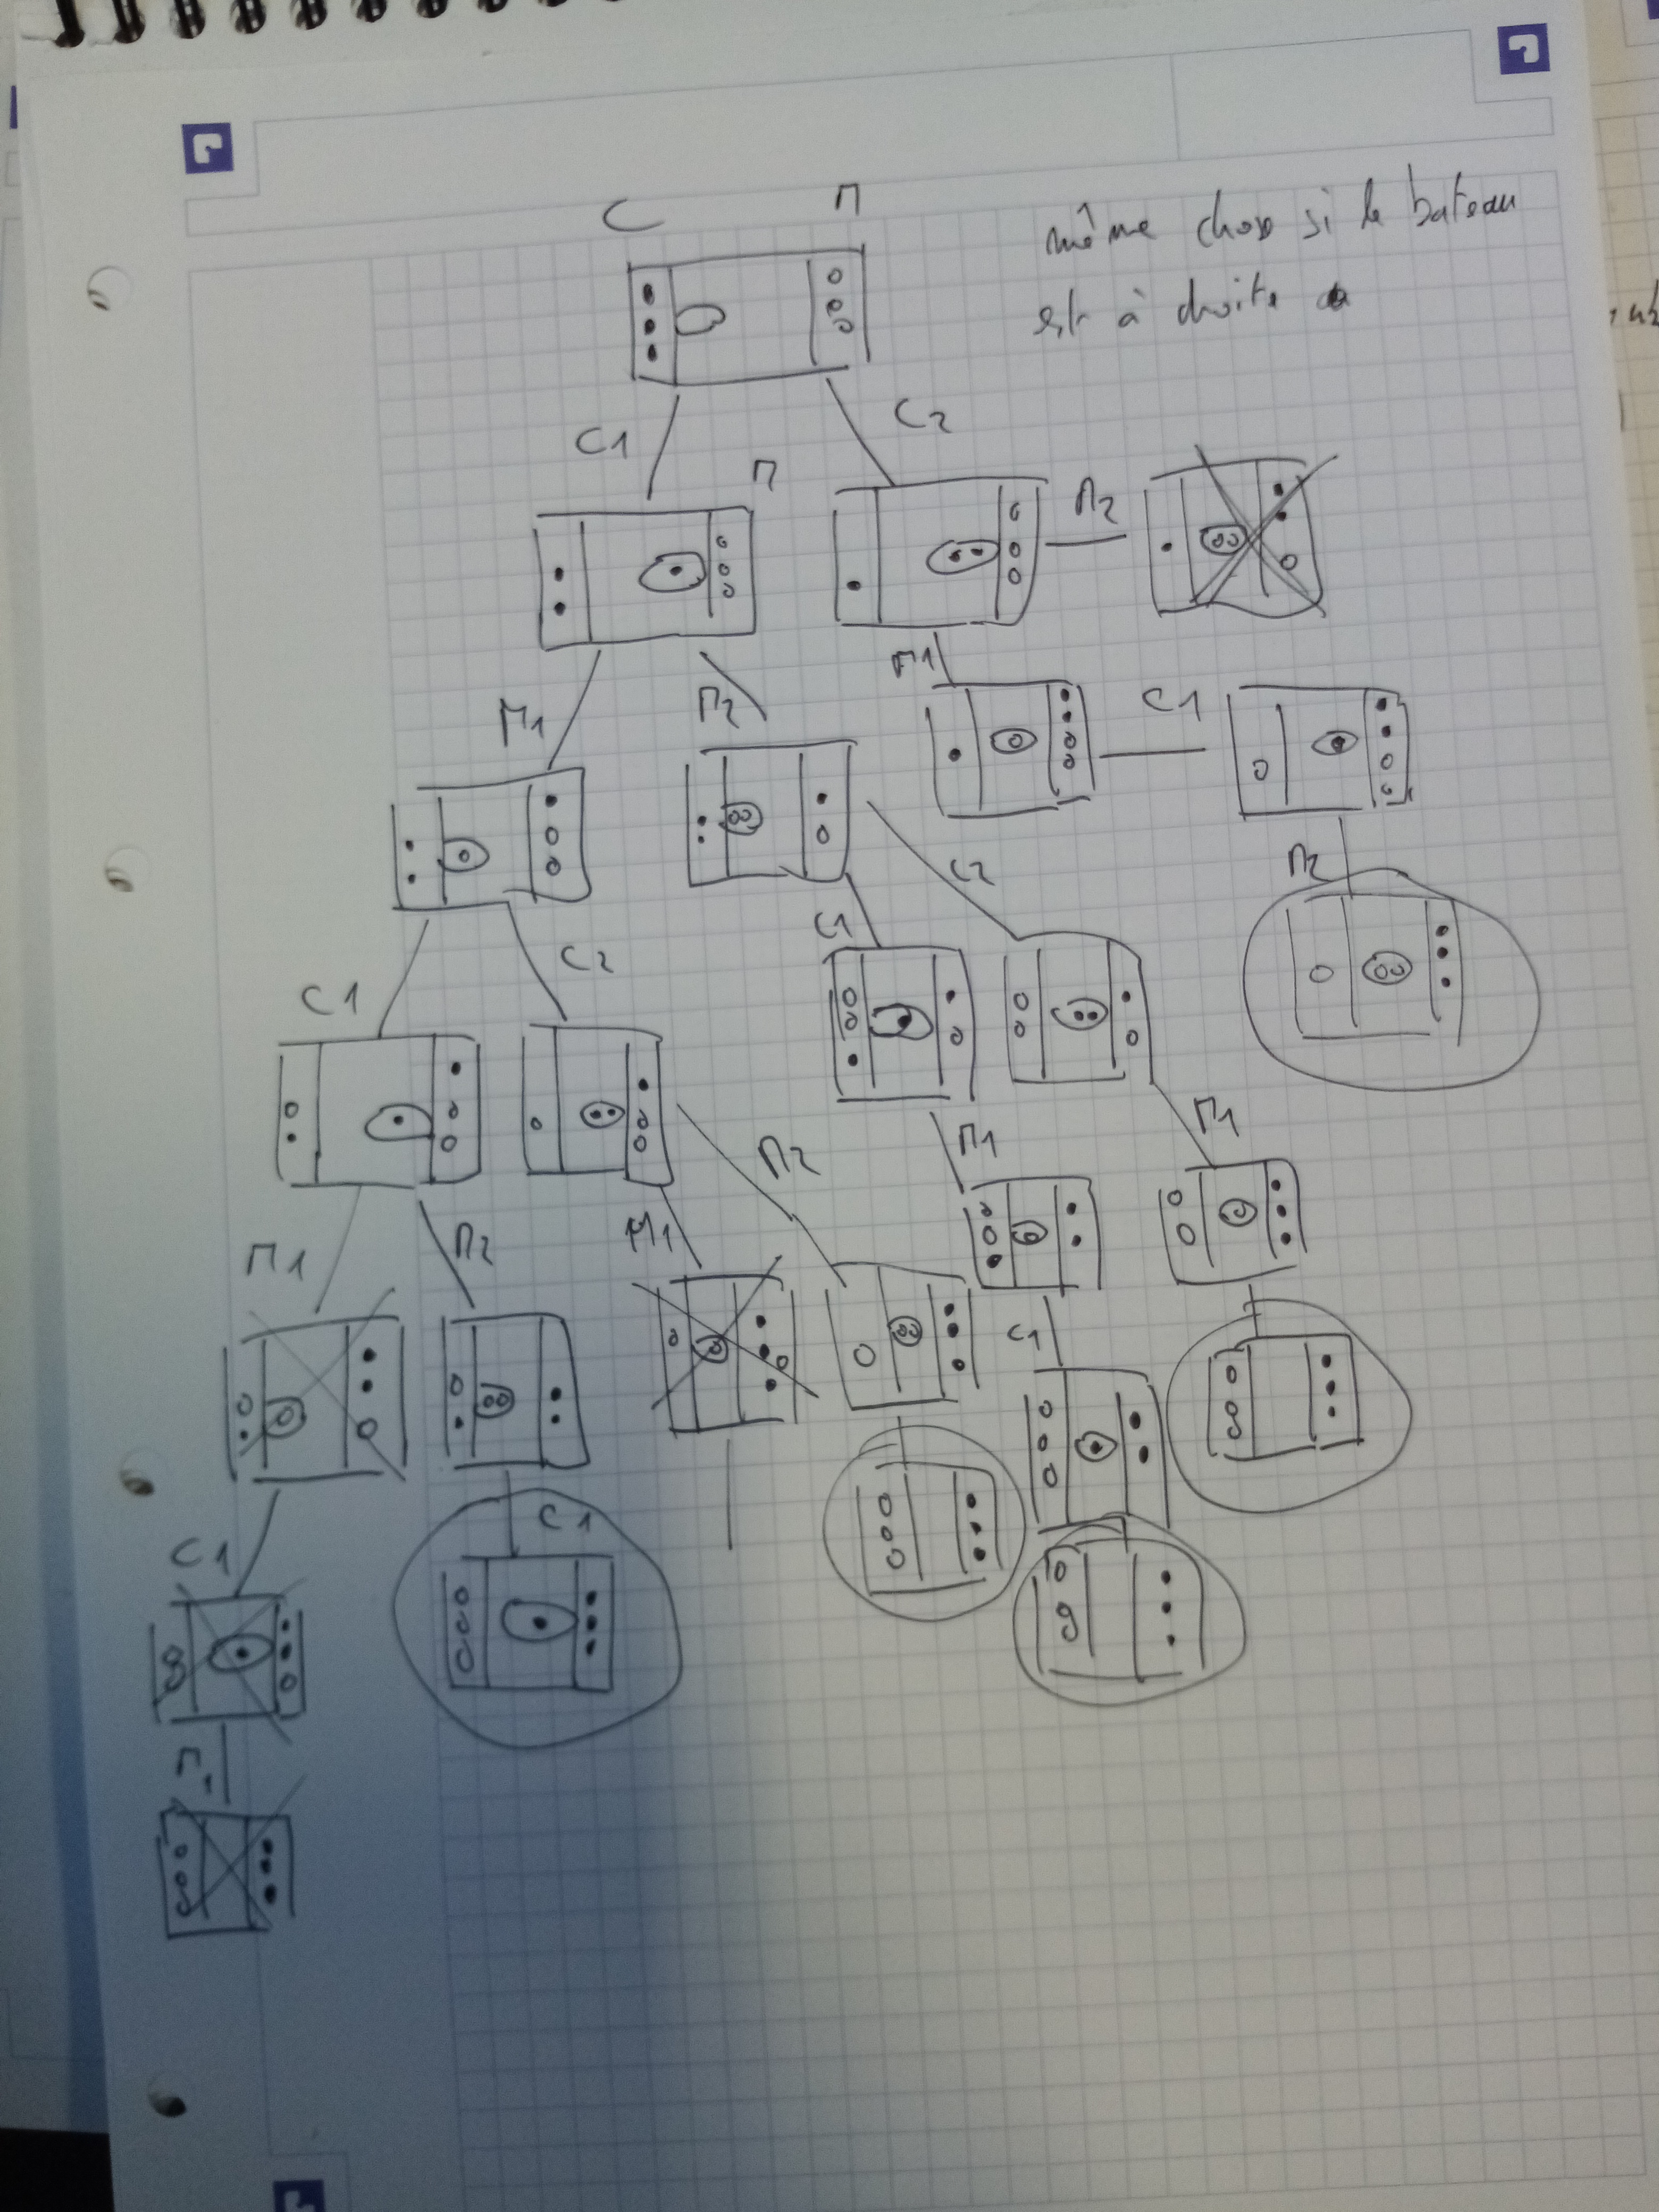 C M
même chose si le bateau
est à droite
C1 C2
M
M2
M1 M2 M1 C1
C2 M2
C1
C1 C2
M1 M1
M2
M1 M2 M1
C1
C1 C1
M1